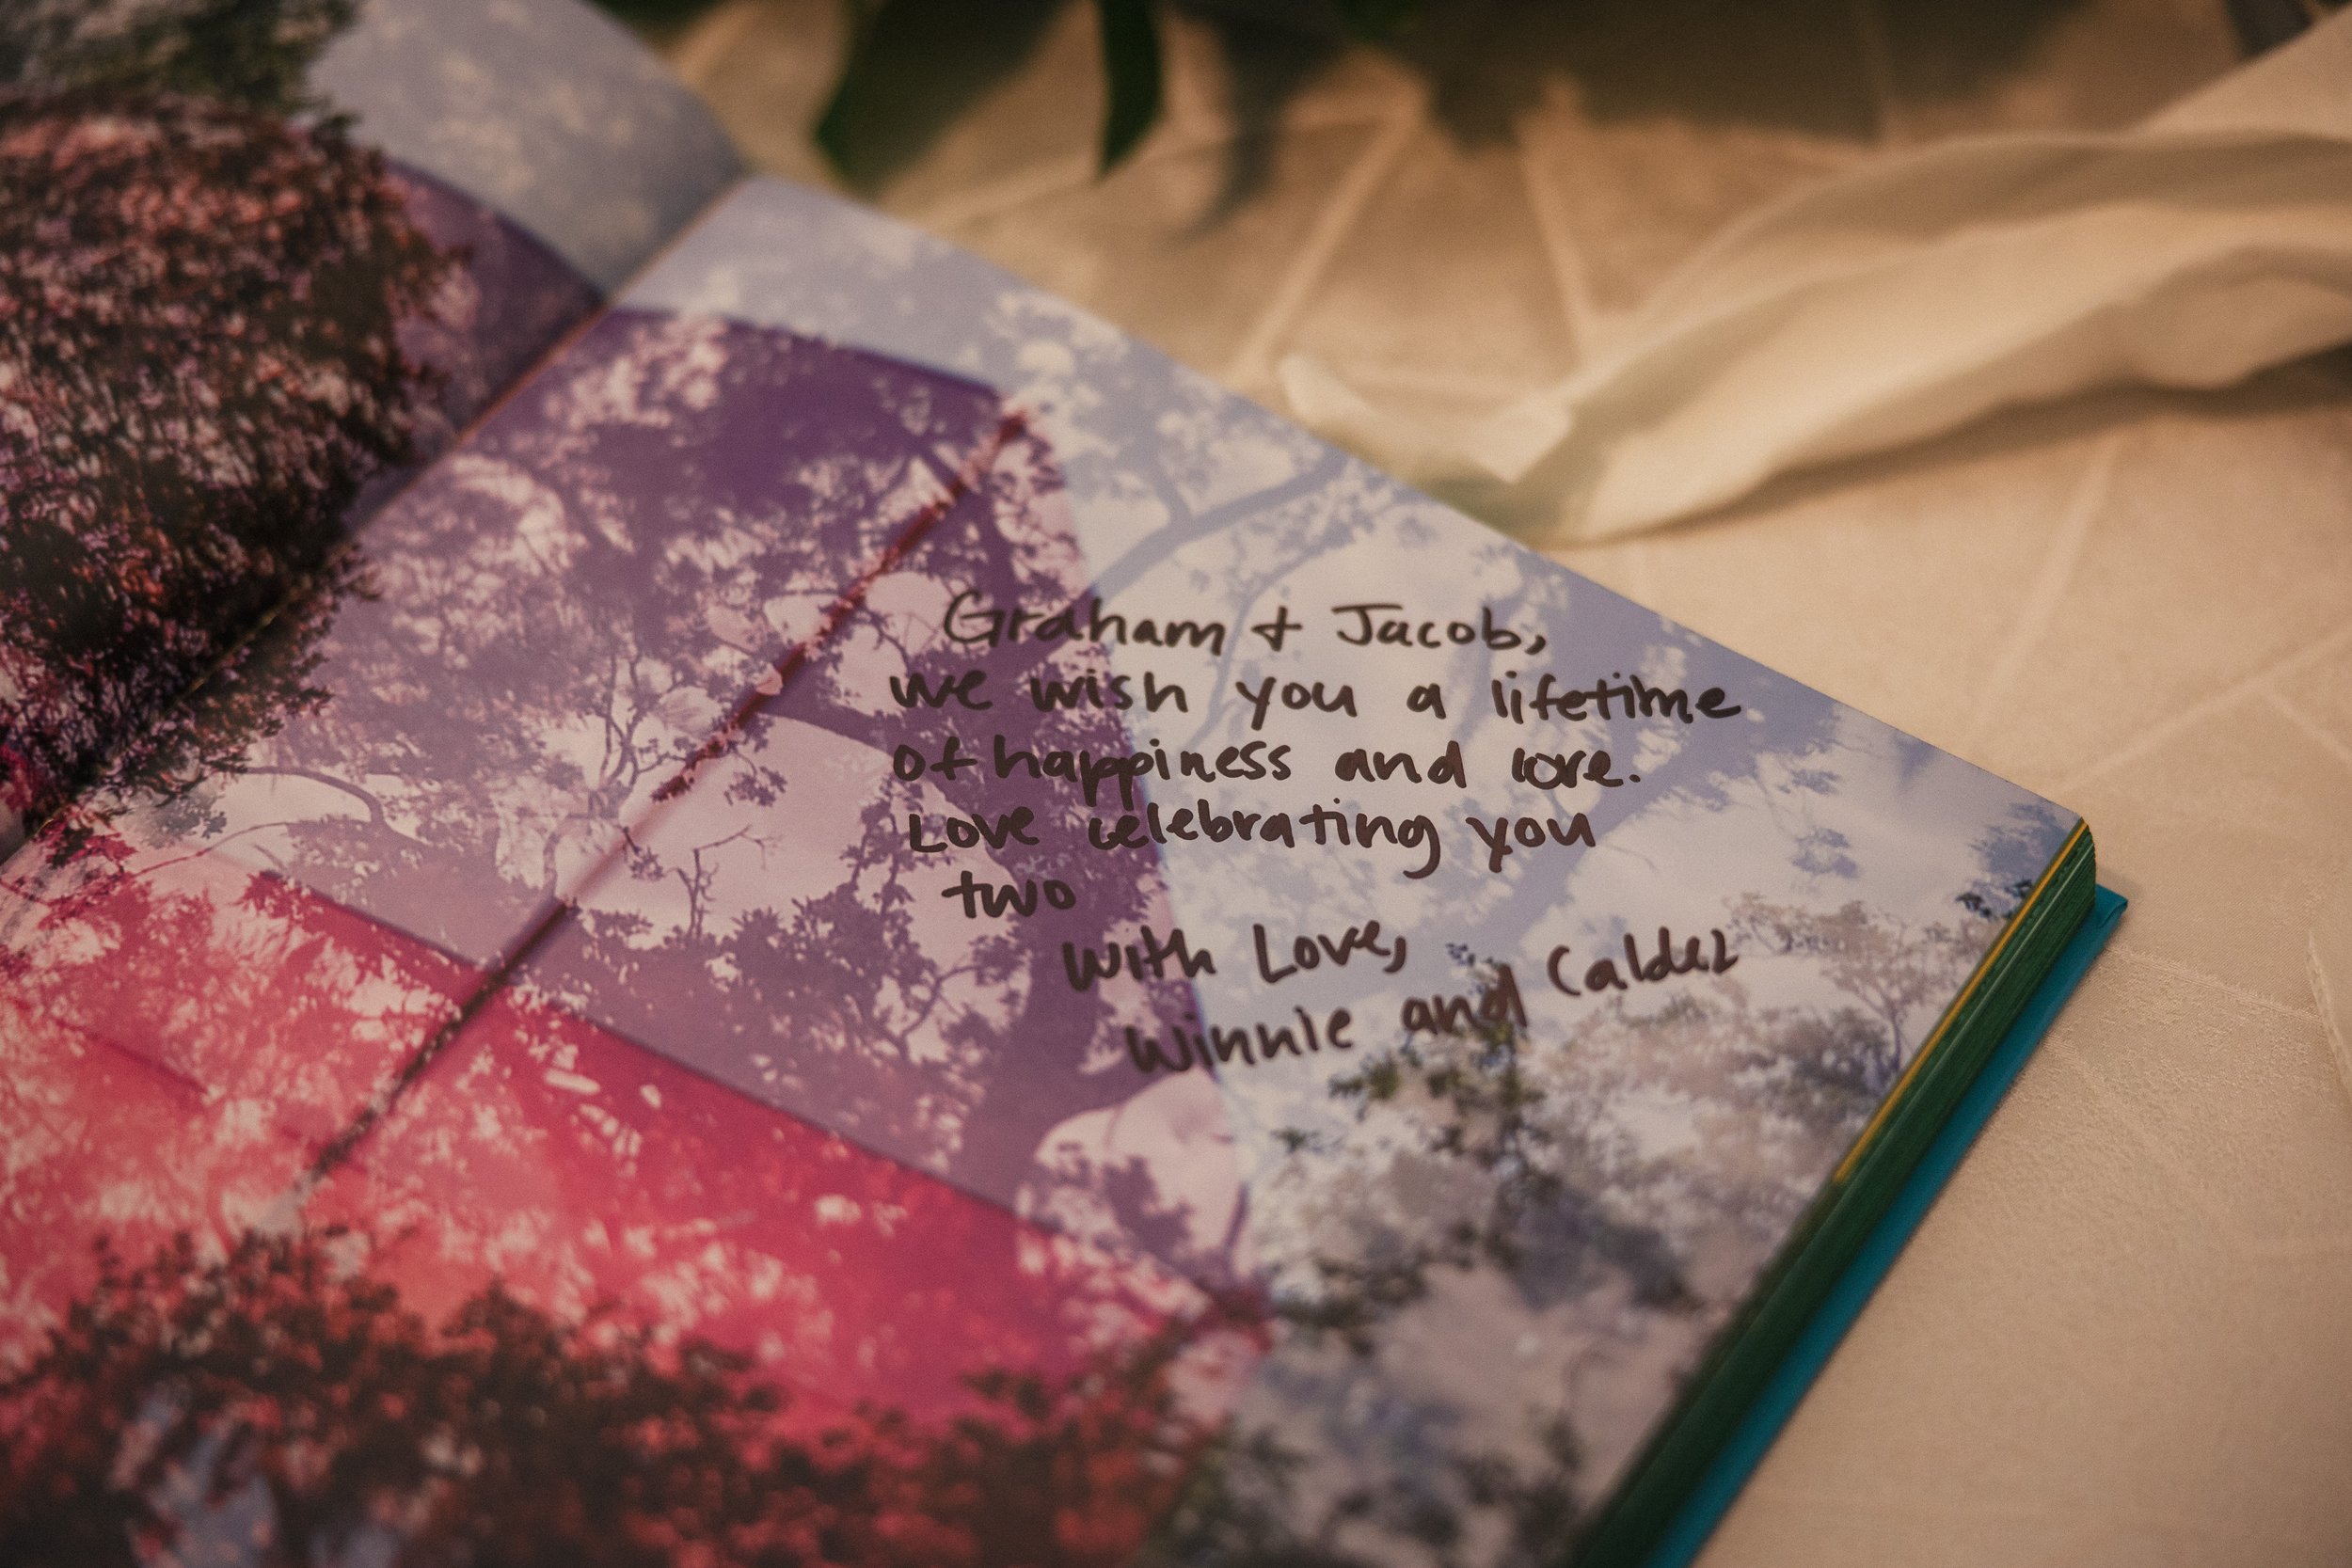 Graham + Jacob,
we wish you a lifetime
of happiness and love.
Love celebrating you
two
with Love,
Winnie and